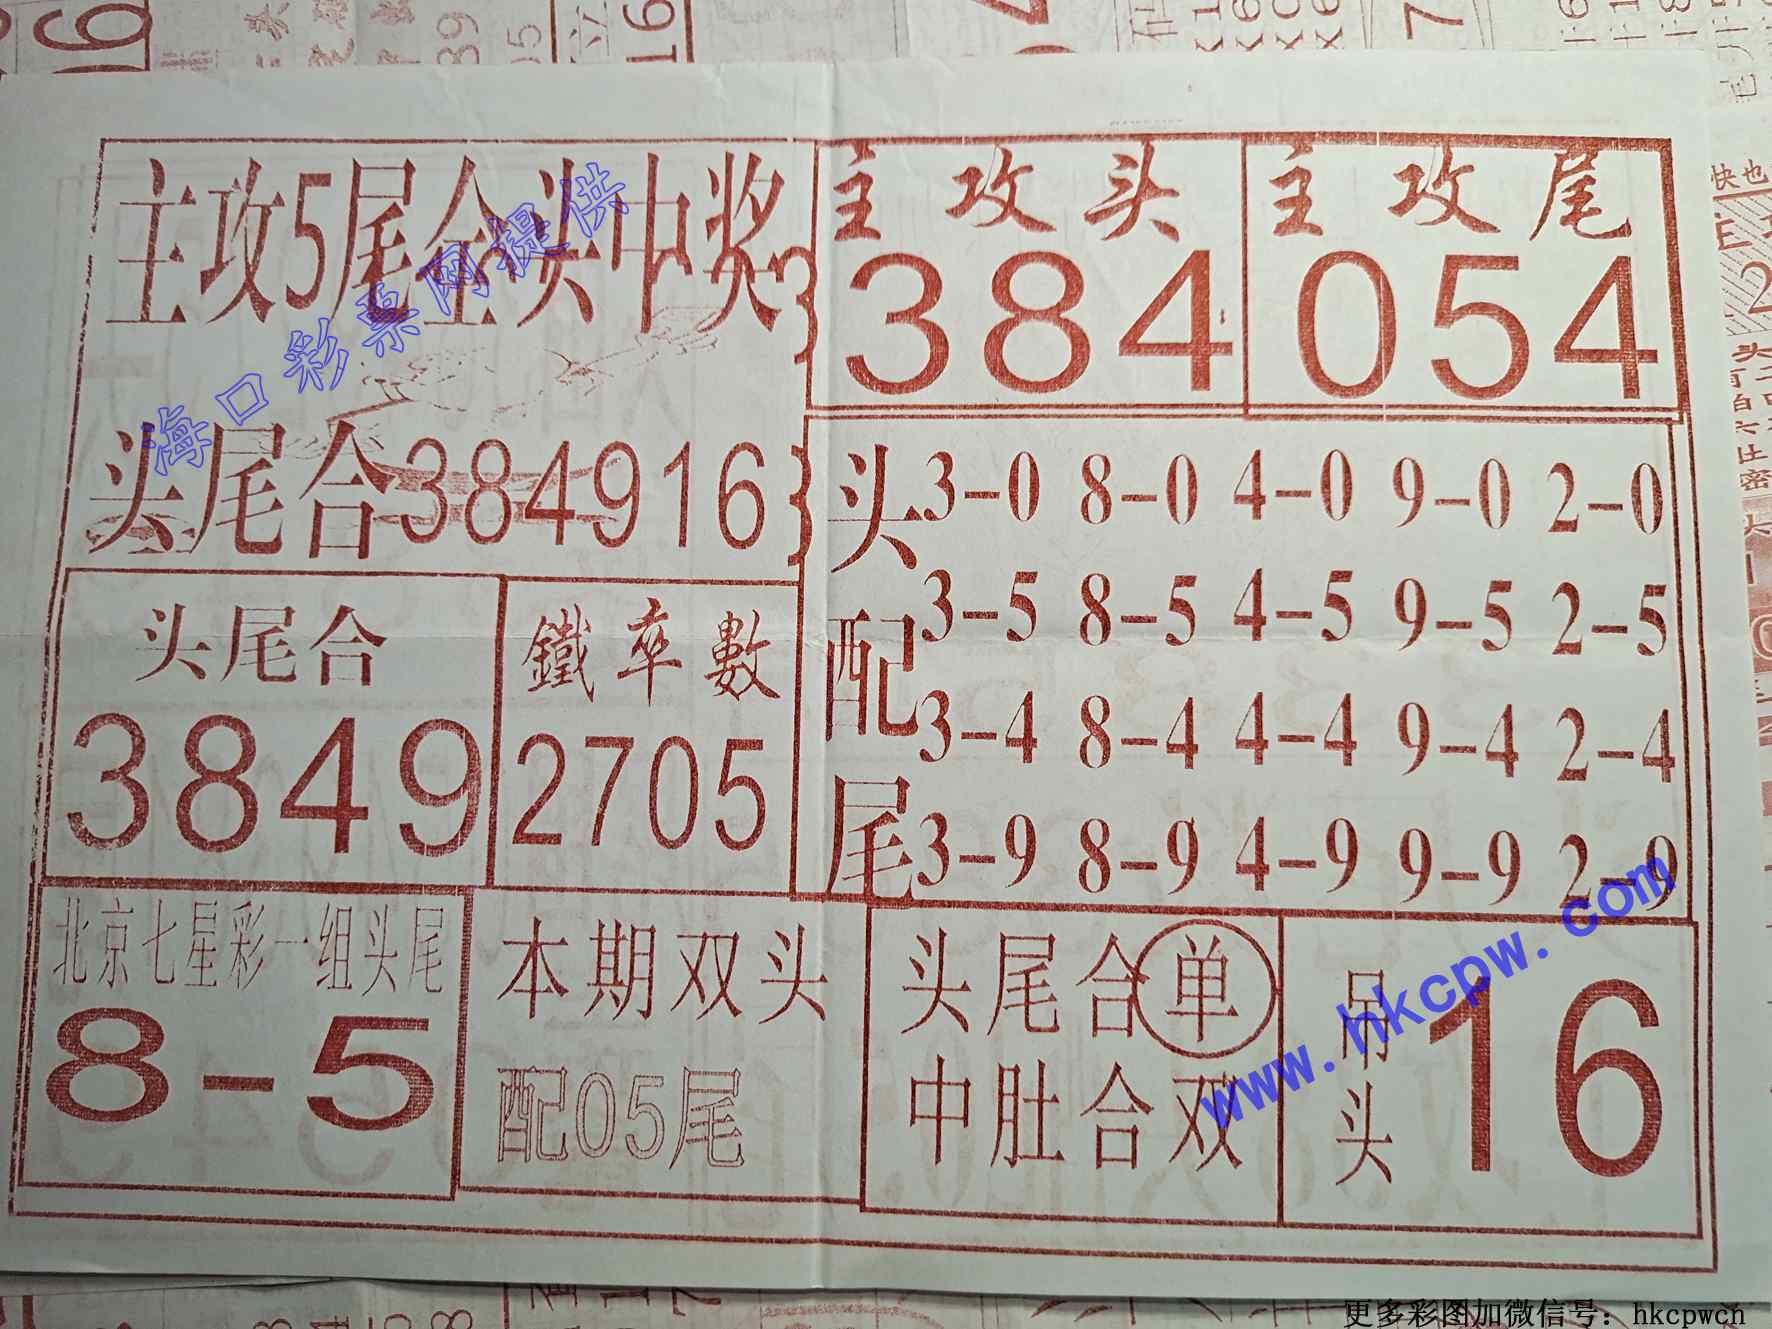 主攻5尾全头中奖
主攻头
384
主攻尾
054
头尾合384916
头配尾
3-0 8-0 4-0 9-0 2-0
3-5 8-5 4-5 9-5 2-5
3-4 8-4 4-4 9-4 2-4
3-9 8-9 4-9 9-9 2-9
头尾合
3849
鐵率數
2705
北京七星彩一组头尾
8-5
本期双头
配05尾
头尾合单
中肚合双
吊头
16
海口彩票网提供
www.hkcpw.com
更多彩图加微信号：hkcpwcn